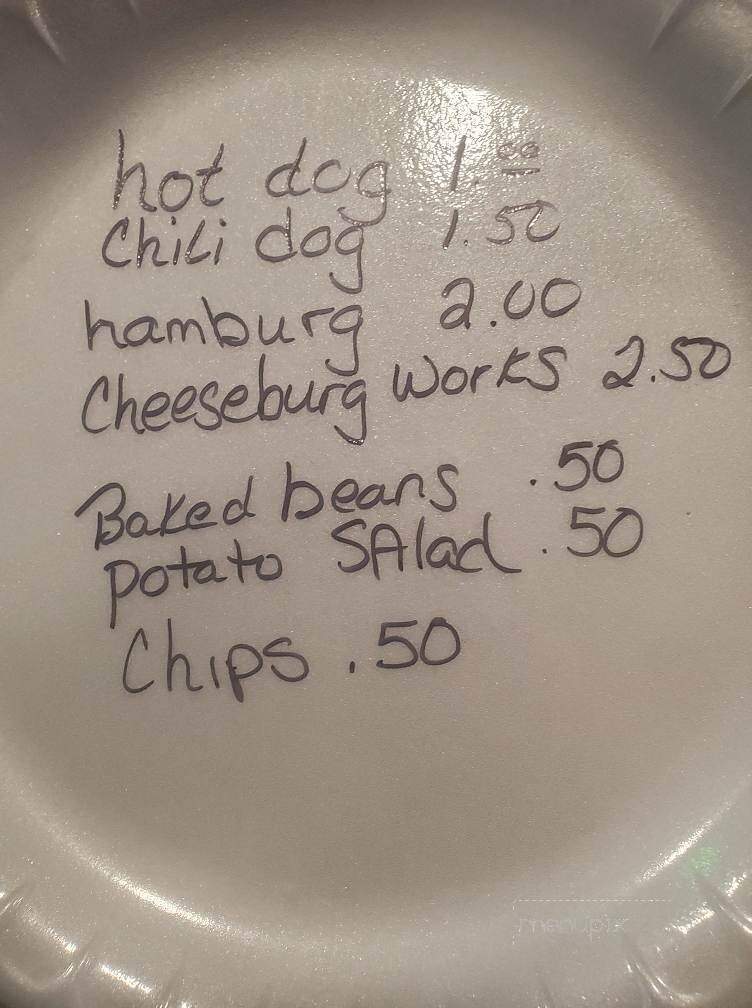 hot dog 1.00
Chili dog 1.50
hamburg 2.00
Cheeseburg Works 2.50
Baked beans .50
potato SAlad .50
Chips .50
menupix